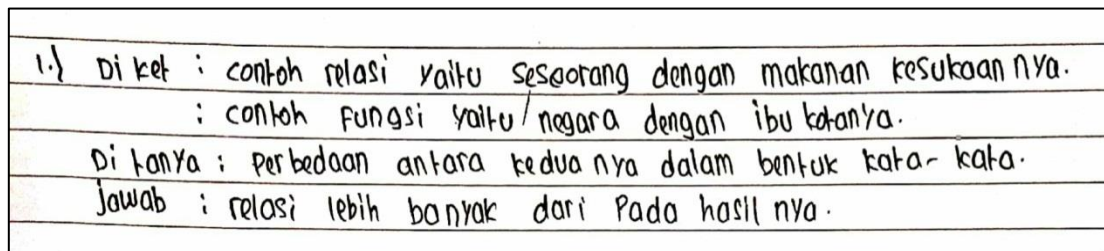 1.} Di ket : contoh relasi yaitu seseorang dengan makanan kesukaan nya.
: contoh fungsi yaitu / negara dengan ibu kotanya.
Di tanya : Per bedaan antara kedua nya dalam bentuk kata-kata.
Jawab : relasi lebih banyak dari Pada hasil nya.